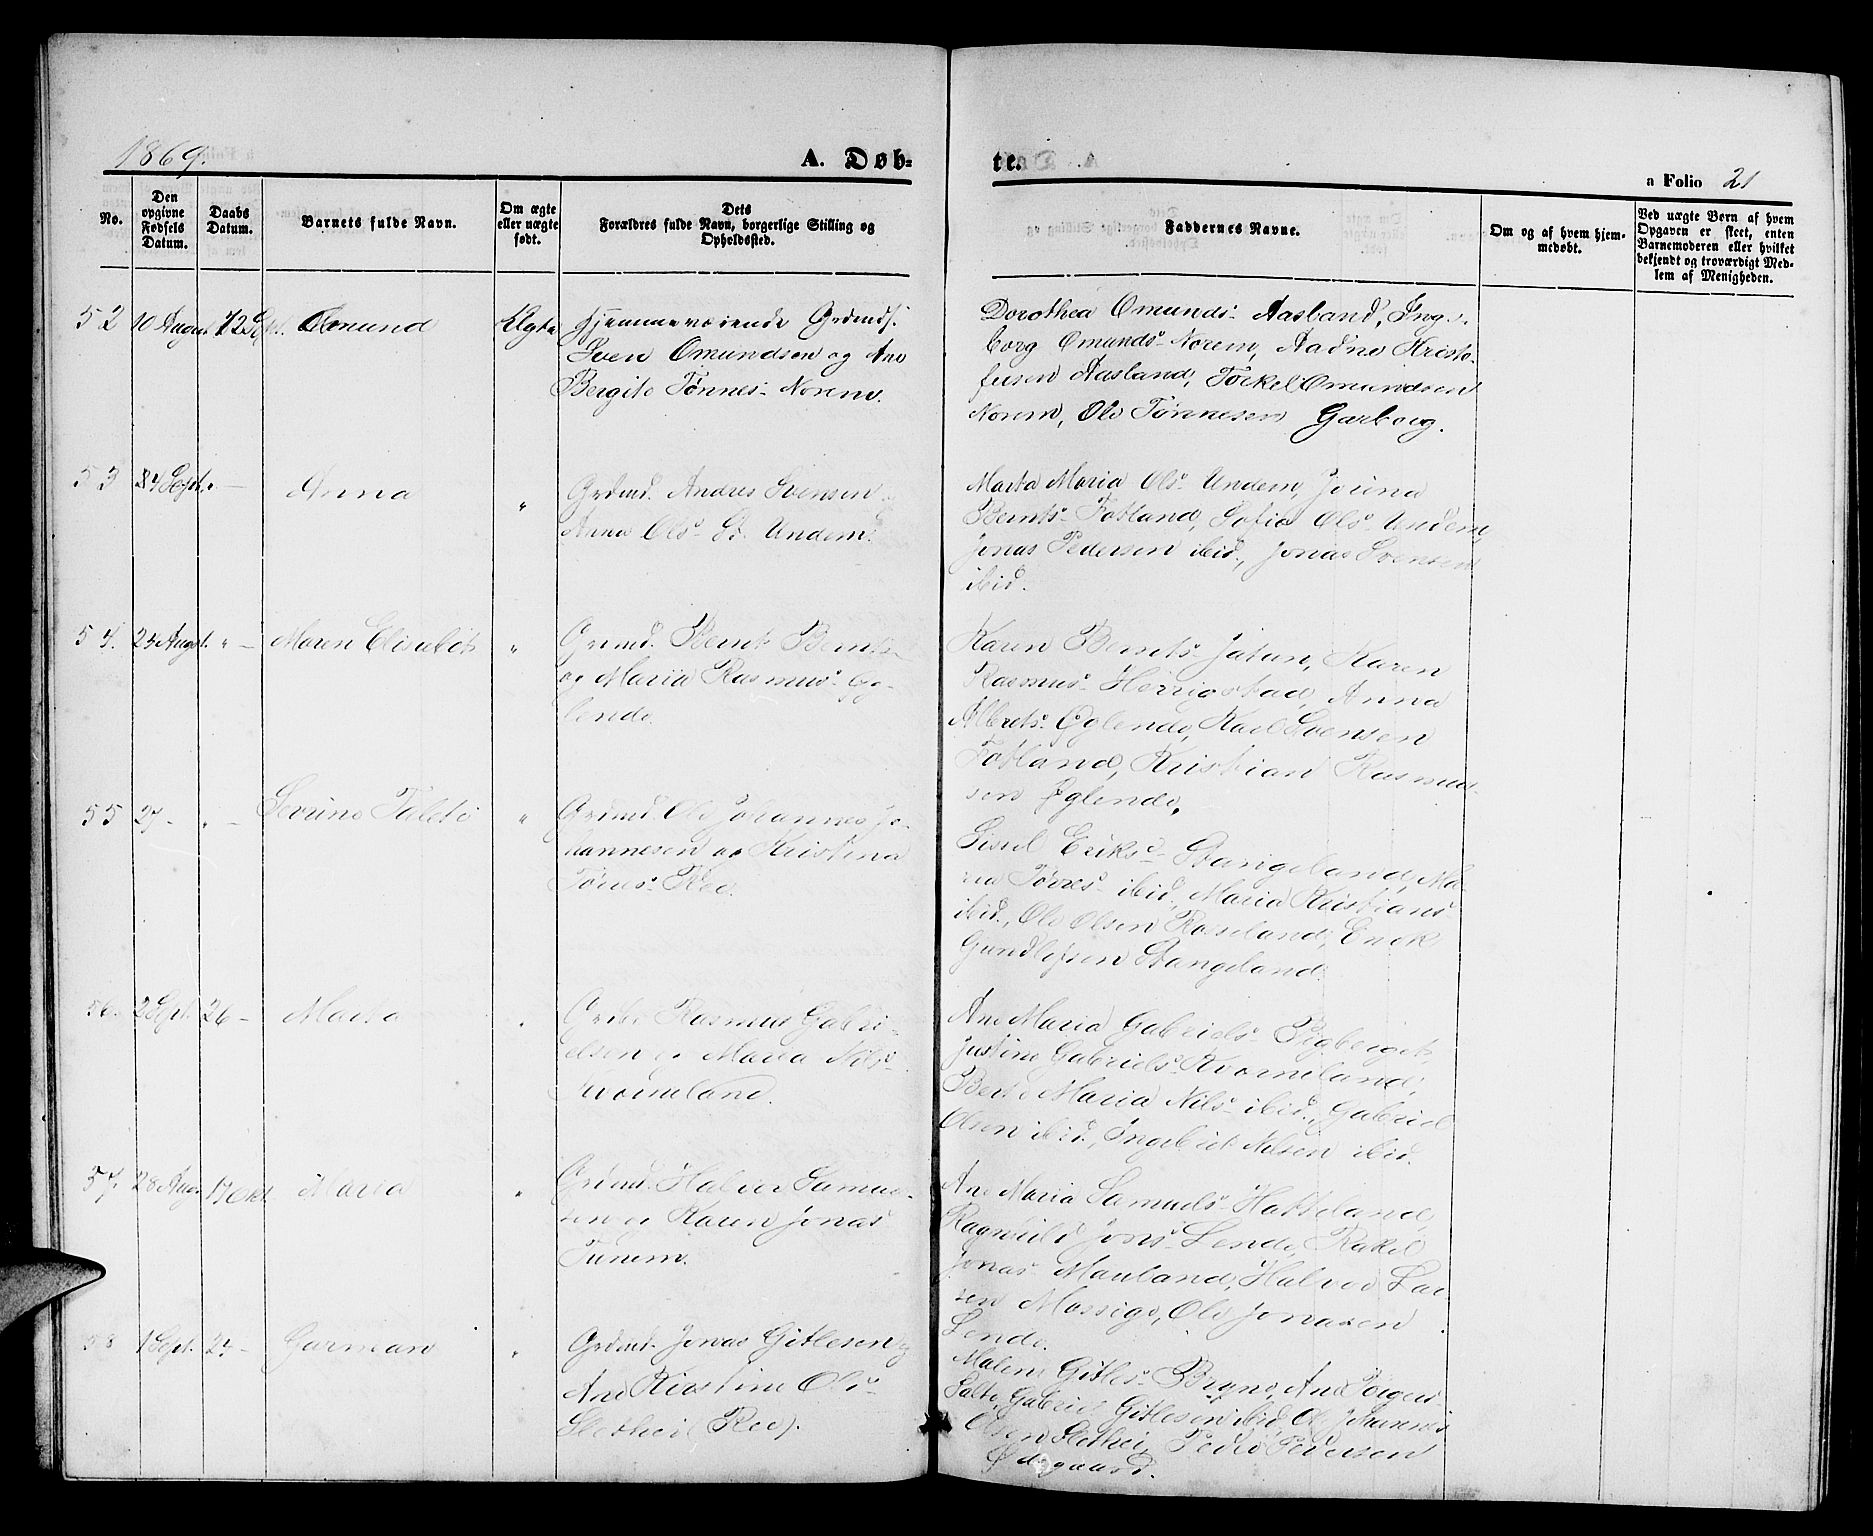 1869.
A. Døb-
te.
a Folio 21
No.
Den opgivne Fødsels Datum.
Daabs Datum.
Barnets fulde Navn.
Om ægte eller uægte født.
Dets Forældres fulde Navn, borgerlige Stilling og Opholdssted.
Faddernes Navne.
Om og af hvem hjemmedøbt.
Ved uægte Børn af hvem Opgaven er skeet, enten Barnemoderen eller hvilket bekjendt og troværdigt Medlem af Menigheden.
52 10 August 12 Sept. Omund Ægte
Hjemmeværende Grdmds.
Sven Omundsen og Ane
Bergite Tønnes- Norem.
Dorothea Omunds- Aasland, Inge-
borg Omunds- Norem, Aadne Kristo-
fersen Aasland, Torkel Omundsen
Norem, Ole Tønnesen Garborg.
53 4 Sept. " — Anna "
Grdmd. Andres Svensen
Anna Ols- St. Undem.
Marta Maria Ols- Undem, Jorina
Bernts- Fotland, Sofie Ols- Undem,
Jonas Pedersen ibid., Jonas Svensen
ibid.
54. 25 August. " — Maren Elisabet "
Grdmd. Bernt Bernts-
og Maria Rasmus- Øg-
lende.
Karen Bernts- Jatun, Karen
Rasmus- Herrigstad, Anna
Albrets- Øglende, Karl Svensen
Fotland, Kristian Rasmus-
sen Øglende.
55 27 — " — Sevrine "
Grdmd. Ole Johannes Jo-
hannesen og Kristina
Tørres- Ree.
Sisil Eriks- Stangeland, Ma-
ria Tørres- ibid., Maria Kristians-
ibid., Ole Olsen Roseland, Enok
Gundleifsen Stangeland.
56. 2 Sept. 26 — Marta "
Rasmus Gabri-
elsen og Maria Nils-
Kvorneland.
Ane Maria Gabriels-
Justine Gabriels- Kvorneland,
Berte Maria Nils- ibid., Gabriel
Olsen ibid., Ingebret Nilsen ibid.
57. 28 Aug. 17 Okt. Maria "
Grdmd. Halvor Samuel-
sen og Karen Jonas-
Tunem.
Ane Maria Samuels- Hatteland,
Ragnhild Jons- Lende, Rakel
Jonas- Mauland, Halvor Lar-
sen Mossige, Ole Jonasen
Lende.
58 1 Sept. 24 — Garman "
Grdmd. Jonas Gitlesen og
Ane Kirstine Ols-
Sletheil Ree).
Malene Gitles- Bryne, Ane Børges-
Salte, Gabriel Gitlesen ibid., Ole Johannes
Olsen Slethei, Peder Pedersen
Ødegaard.